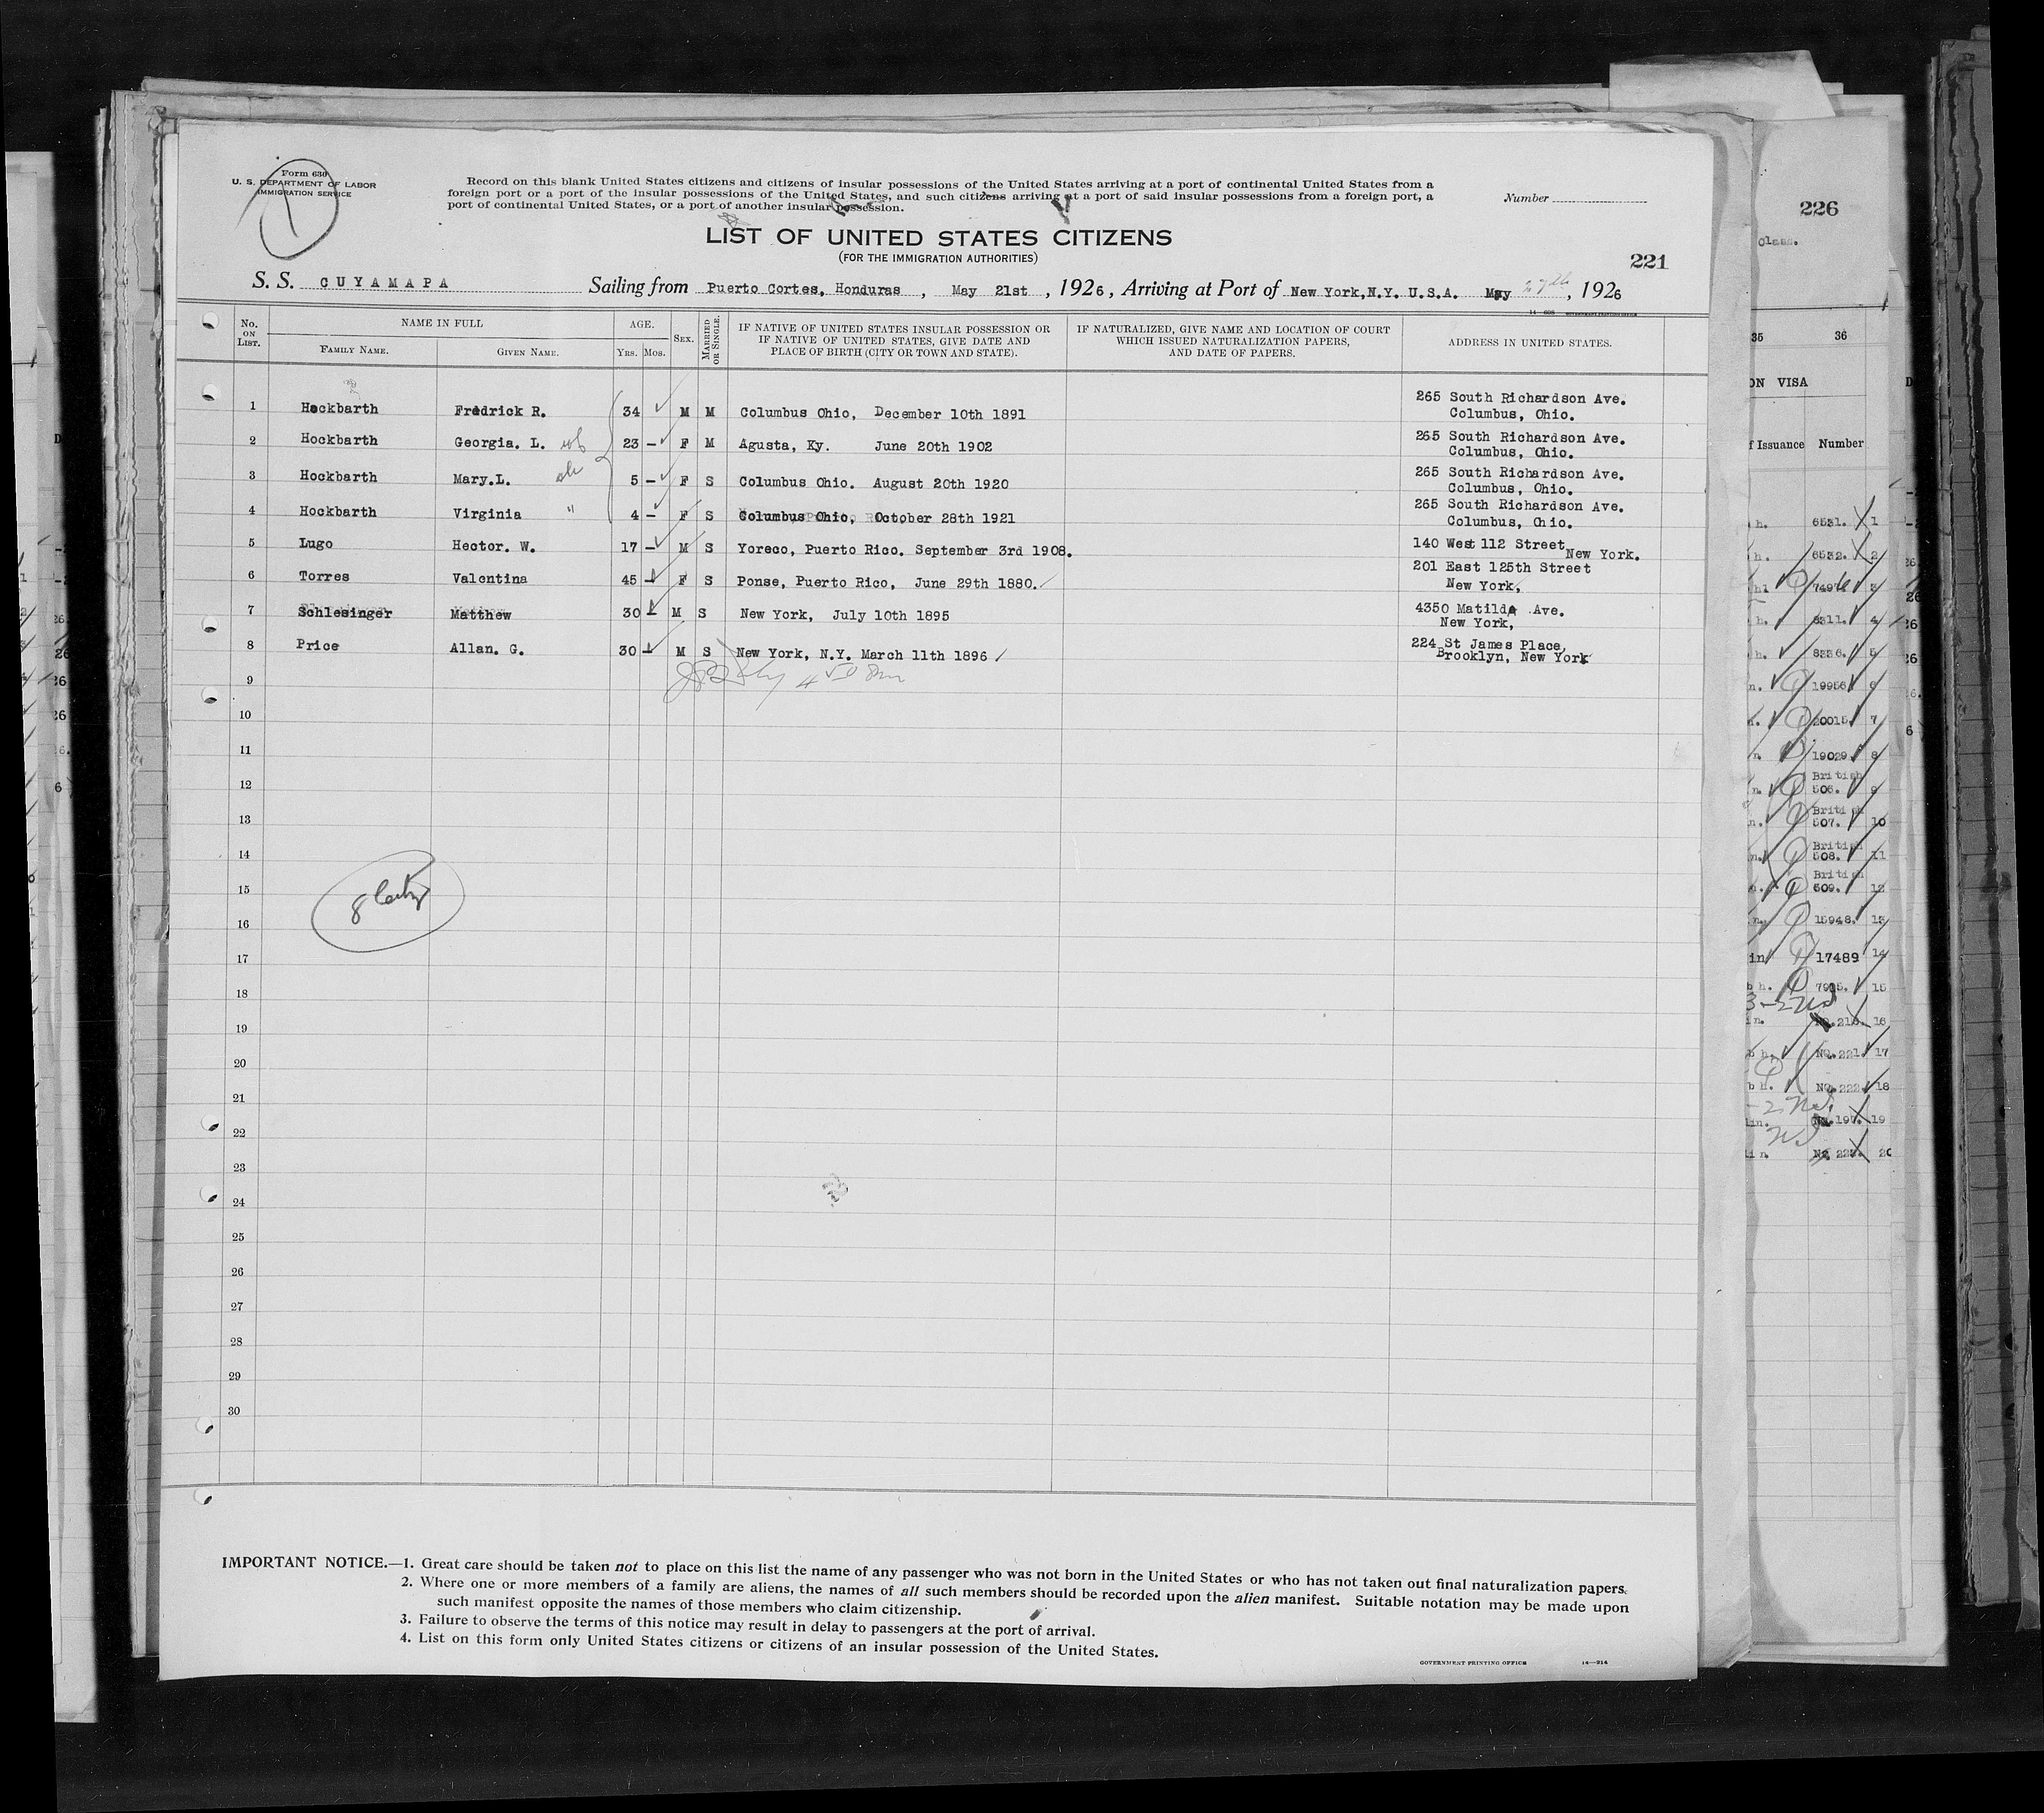 Form 630
U. S. DEPARTMENT OF LABOR
IMMIGRATION SERVICE
1
Record on this blank United States citizens and citizens of insular possessions of the United States arriving at a port of continental United States from a
foreign port or a port of the insular possessions of the United States, and such citizens arriving at a port of said insular possessions from a foreign port, a
port of continental United States, or a port of another insular possession.
Number
LIST OF UNITED STATES CITIZENS
(FOR THE IMMIGRATION AUTHORITIES)
221
S. S. CUYAMAPA Sailing from Puerto Cortes, Honduras, May 21st, 1926, Arriving at Port of New York,N.Y. U.S.A. May 27th, 1926
No. ON LIST. NAME IN FULL AGE. SEX. MARRIED OR SINGLE. IF NATIVE OF UNITED STATES INSULAR POSSESSION OR IF NATIVE OF UNITED STATES, GIVE DATE AND PLACE OF BIRTH (CITY OR TOWN AND STATE). IF NATURALIZED, GIVE NAME AND LOCATION OF COURT WHICH ISSUED NATURALIZATION PAPERS, AND DATE OF PAPERS. ADDRESS IN UNITED STATES.
FAMILY NAME. GIVEN NAME. YRS. MOS.
1 Hockbarth Fredrick R. 34 M M Columbus Ohio, December 10th 1891 265 South Richardson Ave.
Columbus, Ohio.
2 Hockbarth Georgia. L. 23 - F M Agusta, Ky. June 20th 1902 265 South Richardson Ave.
Columbus, Ohio.
3 Hockbarth Mary.L. 5 - F S Columbus Ohio. August 20th 1920 265 South Richardson Ave.
Columbus, Ohio.
4 Hockbarth Virginia " 4 - F S Columbus Ohio, October 28th 1921 265 South Richardson Ave.
Columbus, Ohio.
5 Lugo Hector. W. 17 - M S Yoreco, Puerto Rico. September 3rd 1908. 140 West 112 Street
New York.
6 Torres Valentina 45 - F S Ponse, Puerto Rico, June 29th 1880. 201 East 125th Street
New York,
7 Schlesinger Matthew 30 - M S New York, July 10th 1895 4350 Matilda Ave.
New York,
8 Price Allan. G. 30 - M S New York, N.Y. March 11th 1896 224 St James Place,
Brooklyn, New York
9
10
11
12
13
14
15
16
17
18
19
20
21
22
23
24
25
26
27
28
29
30
IMPORTANT NOTICE.—1. Great care should be taken not to place on this list the name of any passenger who was not born in the United States or who has not taken out final naturalization papers.
2. Where one or more members of a family are aliens, the names of all such members should be recorded upon the alien manifest. Suitable notation may be made upon
such manifest opposite the names of those members who claim citizenship.
3. Failure to observe the terms of this notice may result in delay to passengers at the port of arrival.
4. List on this form only United States citizens or citizens of an insular possession of the United States.
GOVERNMENT PRINTING OFFICE 14—214
226
class.
35 36
ON VISA
f Issuance Number
6531. 1
6532. 2
8311. 4
8336. 5
19956 6
20015. 7
19029. 8
British
506. 9
British
507. 10
British
508. 11
British
509. 12
15948. 13
17489 14
15
16
No.221. 17
No.222. 18
19